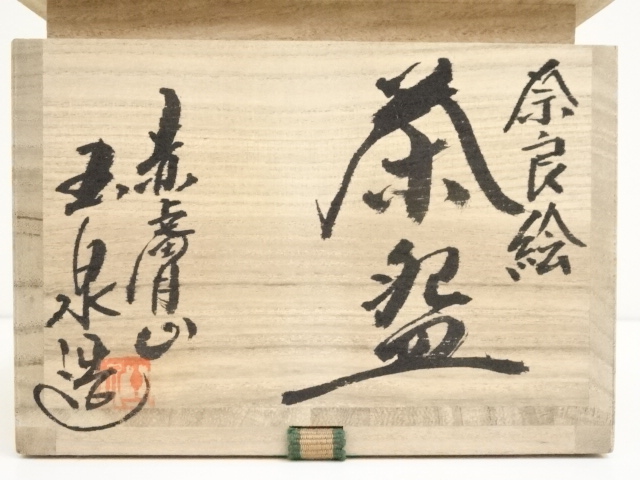 奈良絵
茶盌
赤膚山
玉泉造